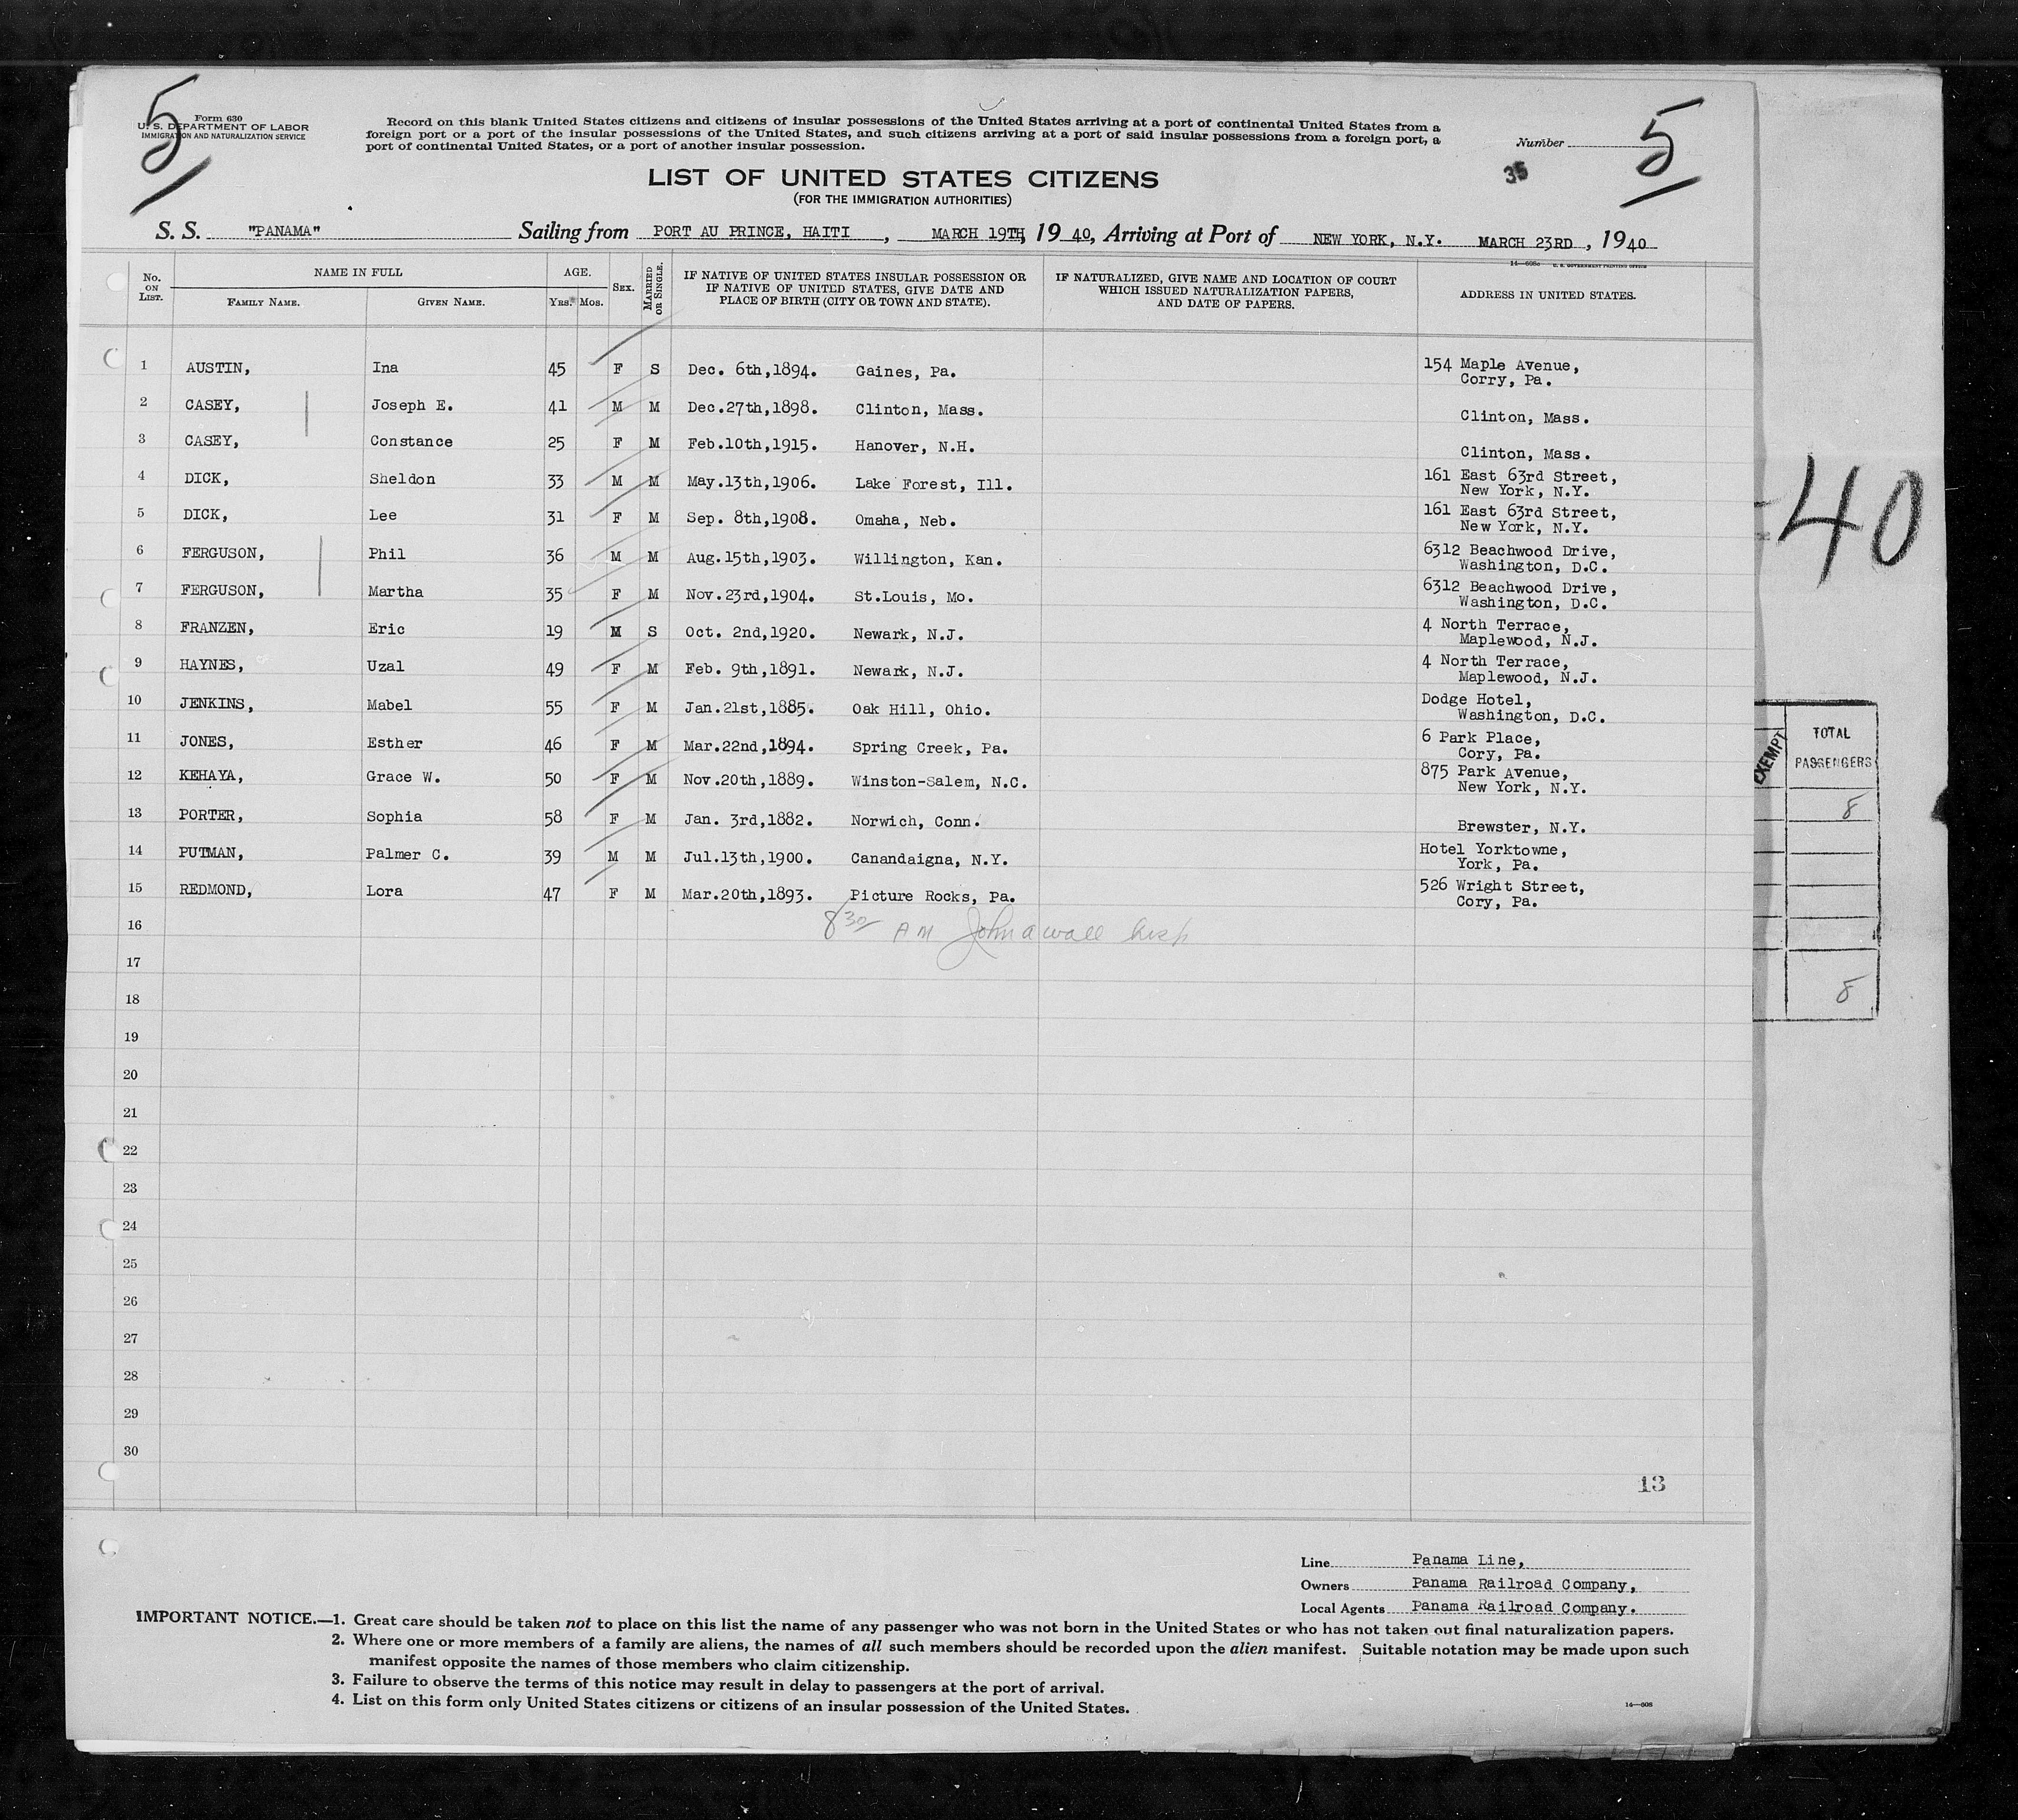 5
Form 630
U. S. DEPARTMENT OF LABOR
IMMIGRATION AND NATURALIZATION SERVICE
Record on this blank United States citizens and citizens of insular possessions of the United States arriving at a port of continental United States from a
foreign port or a port of the insular possessions of the United States, and such citizens arriving at a port of said insular possessions from a foreign port, a
port of continental United States, or a port of another insular possession.
Number
35
5
LIST OF UNITED STATES CITIZENS
(FOR THE IMMIGRATION AUTHORITIES)
S. S. "PANAMA" Sailing from PORT AU PRINCE, HAITI, MARCH 19TH, 19 40, Arriving at Port of NEW YORK, N.Y. MARCH 23RD, 1940
No. ON LIST. NAME IN FULL FAMILY NAME. GIVEN NAME. AGE. YRS. MOS. SEX. MARRIED OR SINGLE. IF NATIVE OF UNITED STATES INSULAR POSSESSION OR IF NATIVE OF UNITED STATES, GIVE DATE AND PLACE OF BIRTH (CITY OR TOWN AND STATE). IF NATURALIZED, GIVE NAME AND LOCATION OF COURT WHICH ISSUED NATURALIZATION PAPERS, AND DATE OF PAPERS. ADDRESS IN UNITED STATES.
1 AUSTIN, Ina 45 F S Dec. 6th,1894. Gaines, Pa. 154 Maple Avenue,
Corry, Pa.
2 CASEY, Joseph E. 41 M M Dec.27th,1898. Clinton, Mass. Clinton, Mass.
3 CASEY, Constance 25 F M Feb.10th,1915. Hanover, N.H. Clinton, Mass.
4 DICK, Sheldon 33 M M May.13th,1906. Lake Forest, Ill. 161 East 63rd Street,
New York, N.Y.
5 DICK, Lee 31 F M Sep. 8th,1908. Omaha, Neb. 161 East 63rd Street,
New York, N.Y.
6 FERGUSON, Phil 36 M M Aug.15th,1903. Willington, Kan. 6312 Beachwood Drive,
Washington, D.C.
7 FERGUSON, Martha 35 F M Nov.23rd,1904. St.Louis, Mo. 6312 Beachwood Drive,
Washington, D.C.
8 FRANZEN, Eric 19 M S Oct. 2nd,1920. Newark, N.J. 4 North Terrace,
Maplewood, N.J.
9 HAYNES, Uzal 49 F M Feb. 9th,1891. Newark, N.J. 4 North Terrace,
Maplewood, N.J.
10 JENKINS, Mabel 55 F M Jan.21st,1885. Oak Hill, Ohio. Dodge Hotel,
Washington, D.C.
11 JONES, Esther 46 F M Mar.22nd,1894. Spring Creek, Pa. 6 Park Place,
Cory, Pa.
12 KEHAYA, Grace W. 50 F M Nov.20th,1889. Winston-Salem, N.C. 875 Park Avenue,
New York, N.Y.
13 PORTER, Sophia 58 F M Jan. 3rd,1882. Norwich, Conn. Brewster, N.Y.
14 PUTMAN, Palmer C. 39 M M Jul.13th,1900. Canandaigna, N.Y. Hotel Yorktowne,
York, Pa.
15 REDMOND, Lora 47 F M Mar.20th,1893. Picture Rocks, Pa. 526 Wright Street,
Cory, Pa.
8 30 AM John a wall Insp
16
17
18
19
20
21
22
23
24
25
26
27
28
29
30
13
40
EXEMPT
TOTAL
PASSENGERS
8
8
Line Panama Line,
Owners Panama Railroad Company,
Local Agents Panama Railroad Company.
IMPORTANT NOTICE.—1. Great care should be taken not to place on this list the name of any passenger who was not born in the United States or who has not taken out final naturalization papers.
2. Where one or more members of a family are aliens, the names of all such members should be recorded upon the alien manifest. Suitable notation may be made upon such
manifest opposite the names of those members who claim citizenship.
3. Failure to observe the terms of this notice may result in delay to passengers at the port of arrival.
4. List on this form only United States citizens or citizens of an insular possession of the United States.
14—608